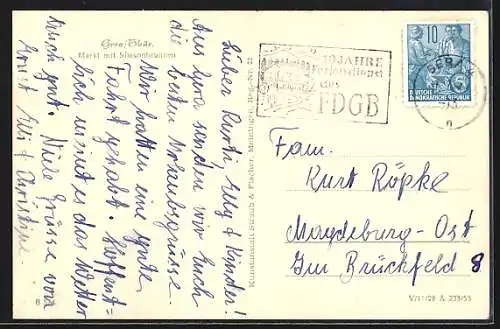 Gera/Thür.
Markt mit Simsonbrunnen
Lieber Kurti, Elly + Kinder!
Aus Gera senden wir Euch
die besten Urlaubsgrüsse.
Wir hatten eine gute
Fahrt gehabt. Hoffent=
lich meint es das Wetter
auch gut. Viele Grüsse von
Ernst, Elly + Christine
Kunstanstalt Straub & Fischer, Meiningen, Reg.-Nr. 22
10 JAHRE
Feriendienst
des
FDGB
10
DEUTSCHE
DEMOKRATISCHE REPUBLIK
GERA
n
Fam.
Kurt Röpke
Magdeburg-Ost
Im Brückfeld 8
V/11/28 A 233/55
8